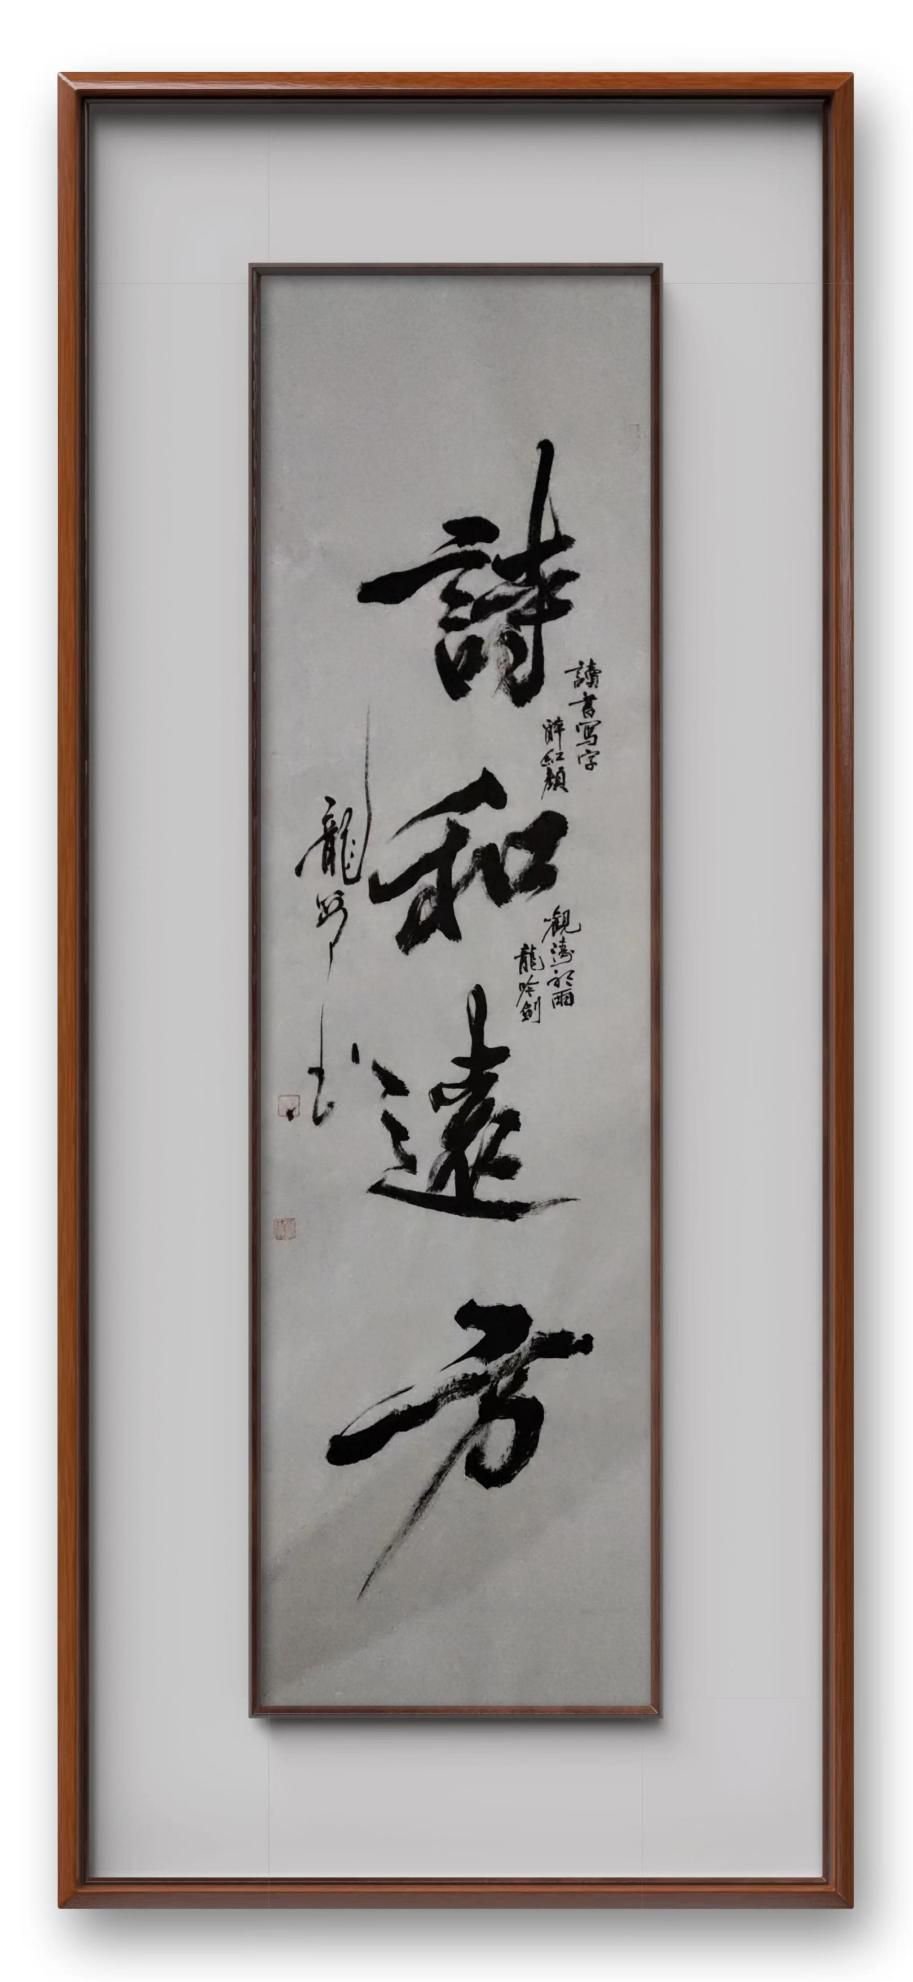 詩和遠方
讀書寫字
醉紅顏
觀濤聽雨
龍吟劍
龍野